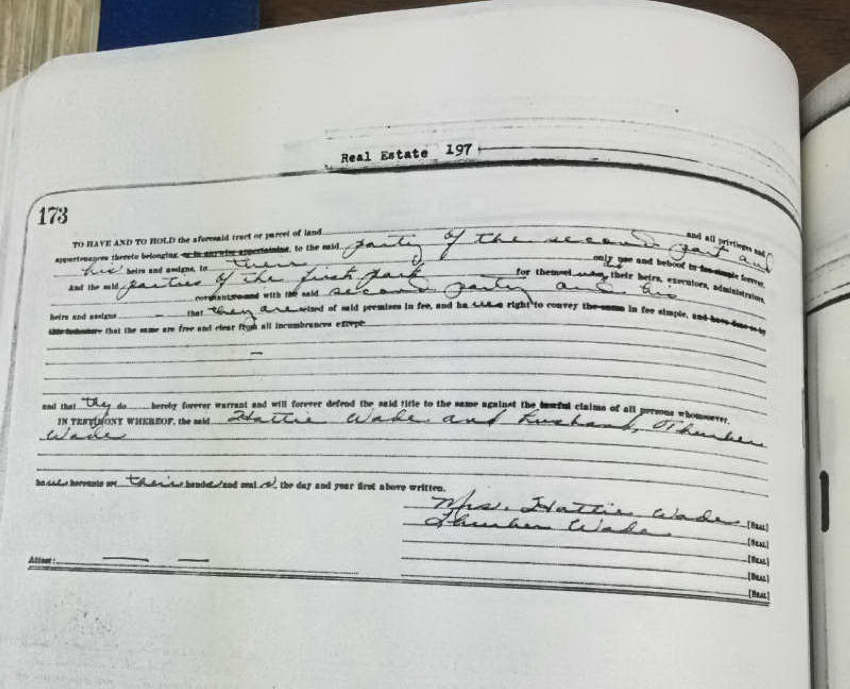 Real Estate 197
173
TO HAVE AND TO HOLD the aforesaid tract or parcel of land and all privileges and
appurtenances thereto belonging or in anywise appertaining, to the said party of the second part and
his heirs and assigns, to their only use and behoof in fee simple forever.
And the said parties of the first part for themselves, their heirs, executors, administrators,
covenant and with the said second party and his
heirs and assigns - that they are seized of said premises in fee, and have right to convey the same in fee simple, and have done
that the same are free and clear from all incumbrances except
—
and that they do hereby forever warrant and will forever defend the said title to the same against the lawful claims of all persons whomsoever.
IN TESTIMONY WHEREOF, the said Hattie Wade and husband, Thurben
Wade
have hereunto set their hands and seals, the day and year first above written.
Mrs. Hattie Wade [SEAL]
Thurben Wade [SEAL]
[SEAL]
Attest: — — [SEAL]
[SEAL]
[SEAL]